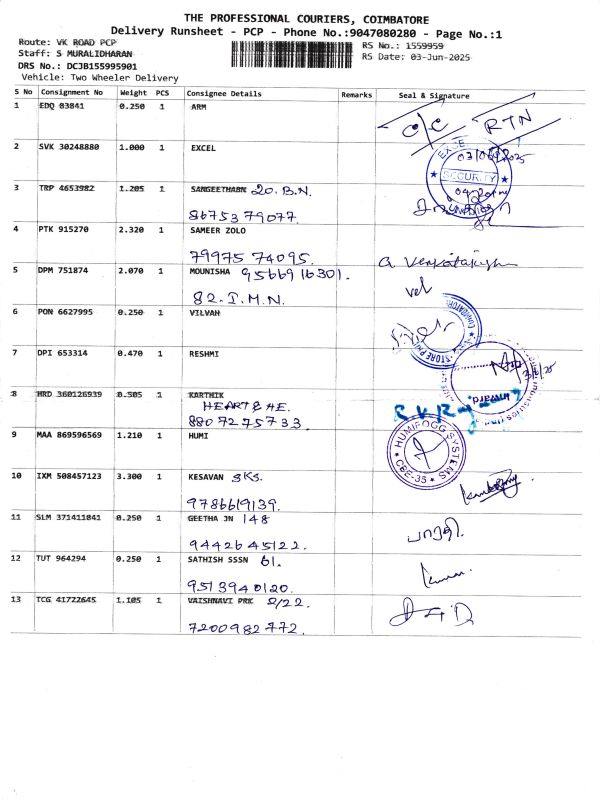 THE PROFESSIONAL COURIERS, COIMBATORE
Delivery Runsheet - PCP - Phone No.:9047080280 - Page No.:1
Route: VK ROAD PCP
Staff: S MURALIDHARAN
DRS No.: DCJB155995901
Vehicle: Two Wheeler Delivery
RS No.: 1559959
RS Date: 03-Jun-2025
S No Consignment No Weight PCS Consignee Details Remarks Seal & Signature
1 EDQ 03841 0.250 1 ARM
C/C RTN
2 SVK 30248880 1.000 1 EXCEL
SECURITY
3 TRP 4653982 1.205 1 SANGEETHABN 20.B.N.
86753 79077
4 PTK 915270 2.320 1 SAMEER ZOLO
79975 74095.
5 DPM 751874 2.070 1 MOUNISHA 9566916301.
82.I.M.N.
vel
6 PON 6627995 0.250 1 VILVAH
7 DPI 653314 0.470 1 RESHMI
Inward
8 HRD 360126939 0.505 1 KARTHIK
HEART & HE.
8807275733.
9 MAA 869596569 1.210 1 HUMI
HUMIFOGG SYSTEMS
CBE-35
10 IXM 508457123 3.300 1 KESAVAN SKS.
9786619139.
11 SLM 371411841 0.250 1 GEETHA JN 148
9442645122.
12 TUT 964294 0.250 1 SATHISH SSSN 61.
9513940120.
13 TCG 41722645 1.105 1 VAISHNAVI PRK 2/22.
7200982772.